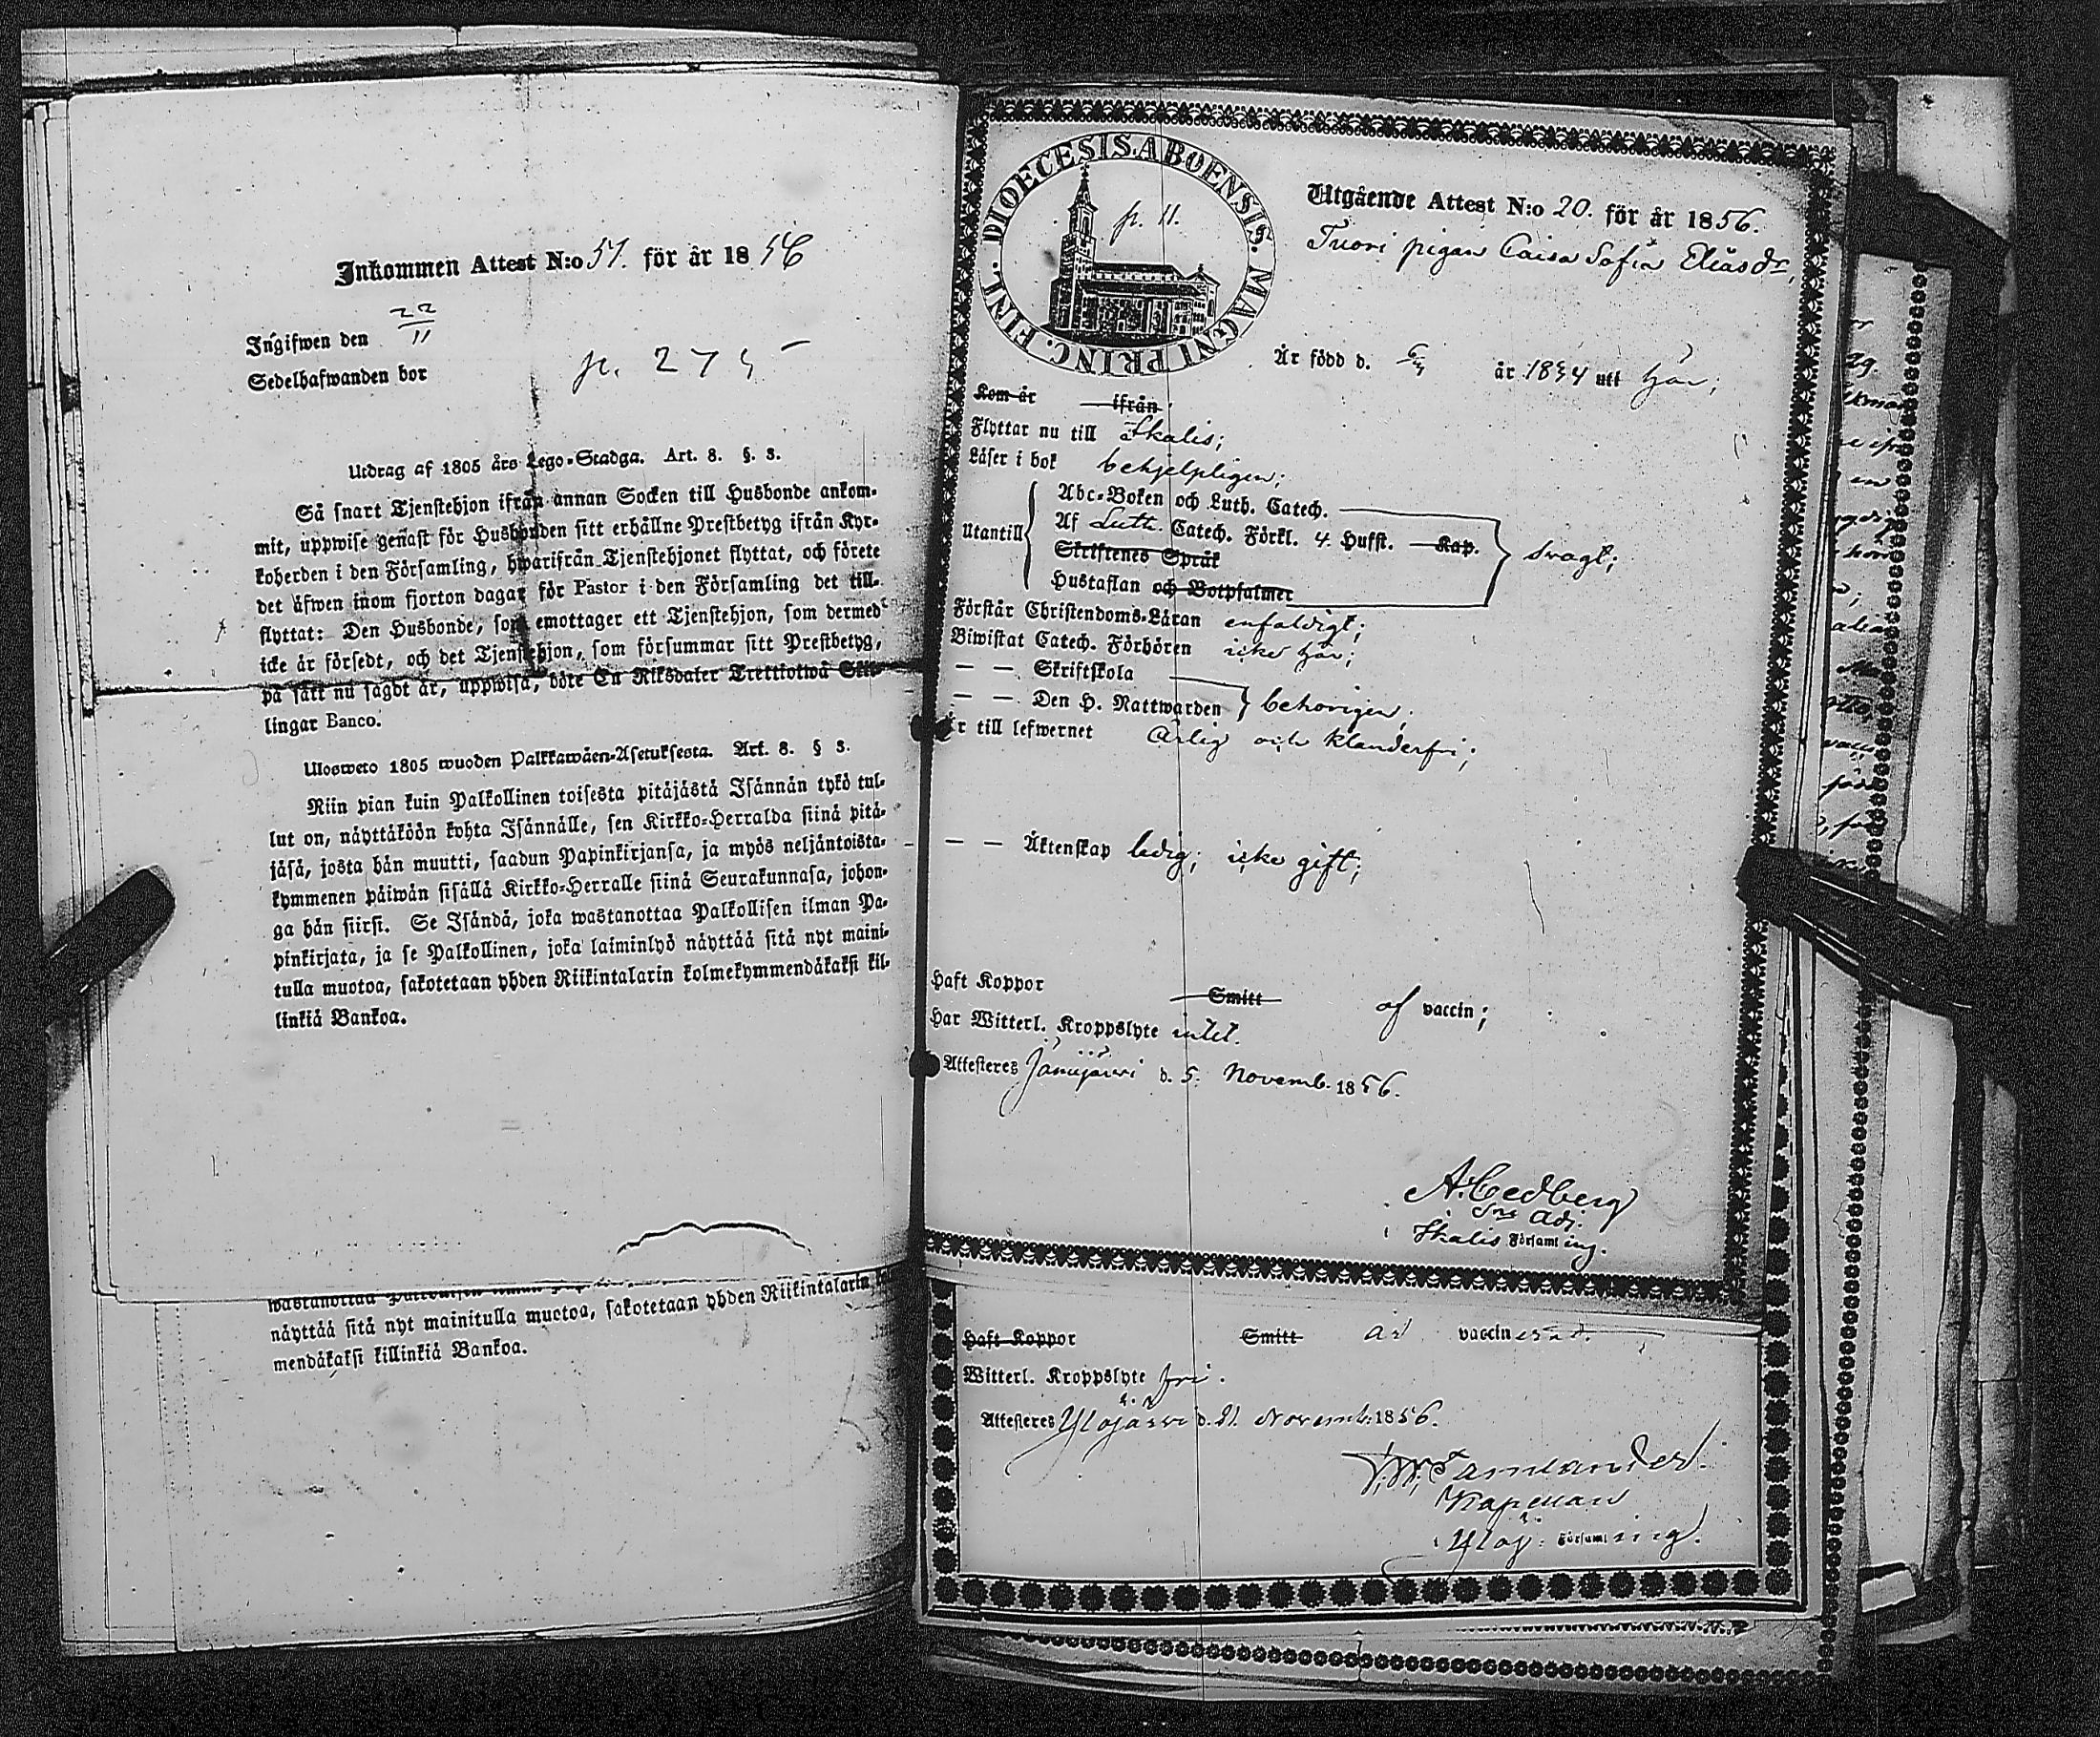 Inkommen Attest N:o 51. för år 1856
Ingifwen den 22/11
Sedelhafwanden bor p. 275
Utdrag af 1805 års Lego-Stadga. Art. 8. §. 3.
Så snart Tjenstehjon ifrån annan Socken till Husbonde ankom-
mit, uppwise genast för Husbonden sitt erhållne Prestbetyg ifrån Kyr-
koherden i den Församling, hwarifrån Tjenstehjonet flyttat, och förete
det äfwen inom fjorton dagar för Pastor i den Församling det till-
flyttat: Den Husbonde, som emottager ett Tjenstehjon, som dermed
icke är försedt, och det Tjenstehjon, som försummar sitt Prestbetyg,
på sätt nu sagdt är, uppwisa, böte En Riksdaler Trettiotwå Skil-
lingar Banco.
Ulosweto 1805 wuoden Palkkawäen-Asetuksesta. Art. 8. § 3.
Niin pian kuin Palkollinen toisesta pitäjästä Isännän tykö tul-
lut on, näyttäköön kohta Isännälle, sen Kirkko-Herralda siinä pitä-
jäsä, josta hän muutti, saadun Papinkirjansa, ja myös neljäntoista-
kymmenen päiwän sisällä Kirkko-Herralle siinä Seurakunnasa, johon-
ga hän siirsi. Se Isändä, joka wastanottaa Palkollisen ilman Pa-
pinkirjata, ja se Palkollinen, joka laiminlyö näyttää sitä nyt maini-
tulla muotoa, sakotetaan yhden Riikintalarin kolmekymmendäkaksi kil-
linkiä Bankoa.
näyttää sitä nyt mainitulla muotoa, sakotetaan yhden Riikintalarin
mendäkaksi killinkiä Bankoa.
DIOECESIS. ABOENSIS. MAGNI PRINC. FINL.
p. 11.
Utgående Attest N:o 20. för år 1856.
Tuori pigan Caisa Sofia Eliasdr,
Är född d. år 1834 uti här;
Kom år ifrån
Flyttar nu till Ikalis;
Läser i bok behjelpligen;
Utantill
Abc-Boken och Luth. Catech.
Af Luth. Catech. Förkl. 4. Hufst. Kap.
Skriftenes Språk
Hustaflan och Botpsalmer
svagt;
Förstår Christendoms-Läran enfaldigt;
Biwistat Catech. Förhören icke här;
— — Skriftskola
— — Den H. Nattwarden behörigen;
Är till lefwernet ärlig och klanderfri;
— — Äktenskap ledig; icke gift;
Haft Koppor Smitt af vaccin;
Har Witterl. Kroppslyte intet.
Attesteres Jämijärvi d. 5. Novemb. 1856.
A. Cedberg
Adj.
i Ikalis Församling.
Haft Koppor Smitt är vaccinerad.
Witterl. Kroppslyte fri.
Attesteres Ylöjärvi d. 21. Novemb. 1856.
Kapellan
i Ylöj. Församling.